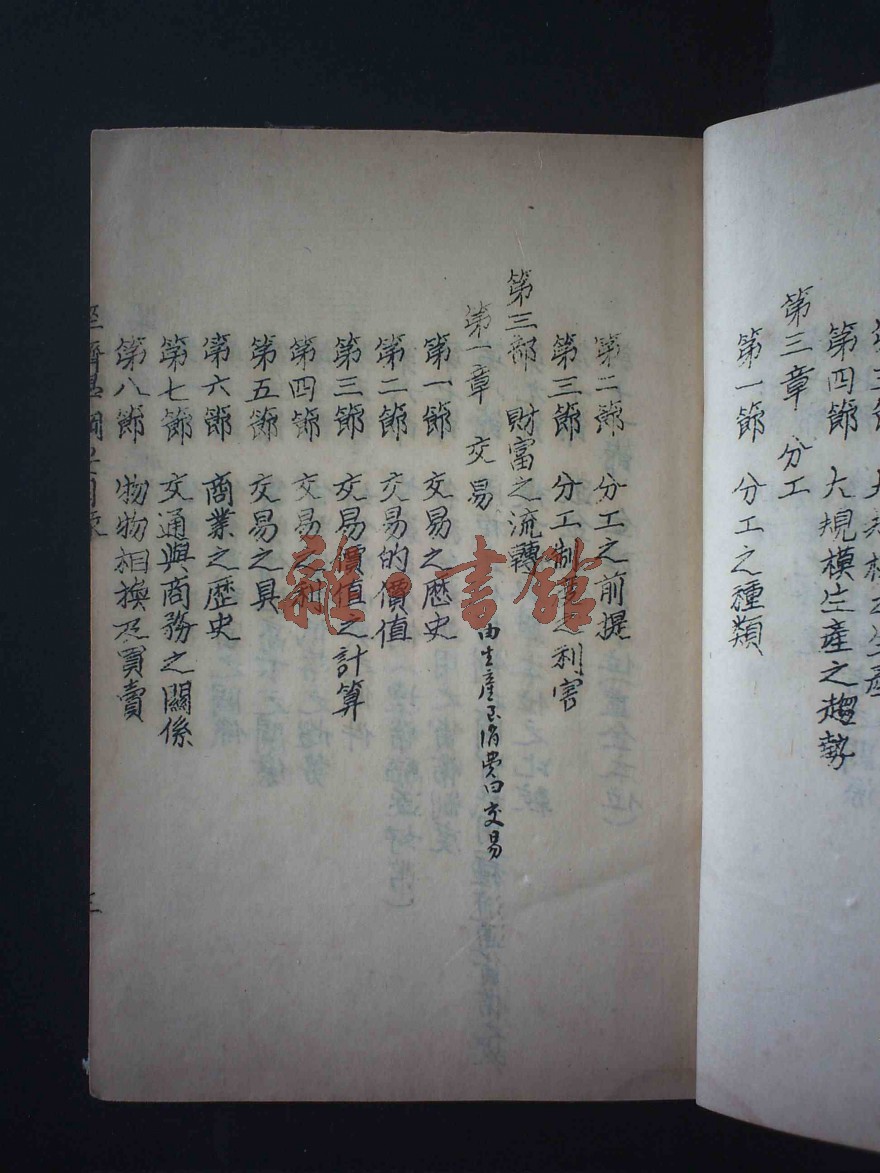 第四節 大規模生產之趨勢
第三章 分工
第一節 分工之種類
第二節 分工之前提
第三節 分工制度之利害
第三部 財富之流轉
由生產至消費曰交易
第一章 交易
第一節 交易之歷史
第二節 交易的價值
第三節 交易價值之計算
第四節 交易之利
第五節 交易之具
第六節 商業之歷史
第七節 交通與商務之關係
第八節 物物相換及買賣
三
雜·書館